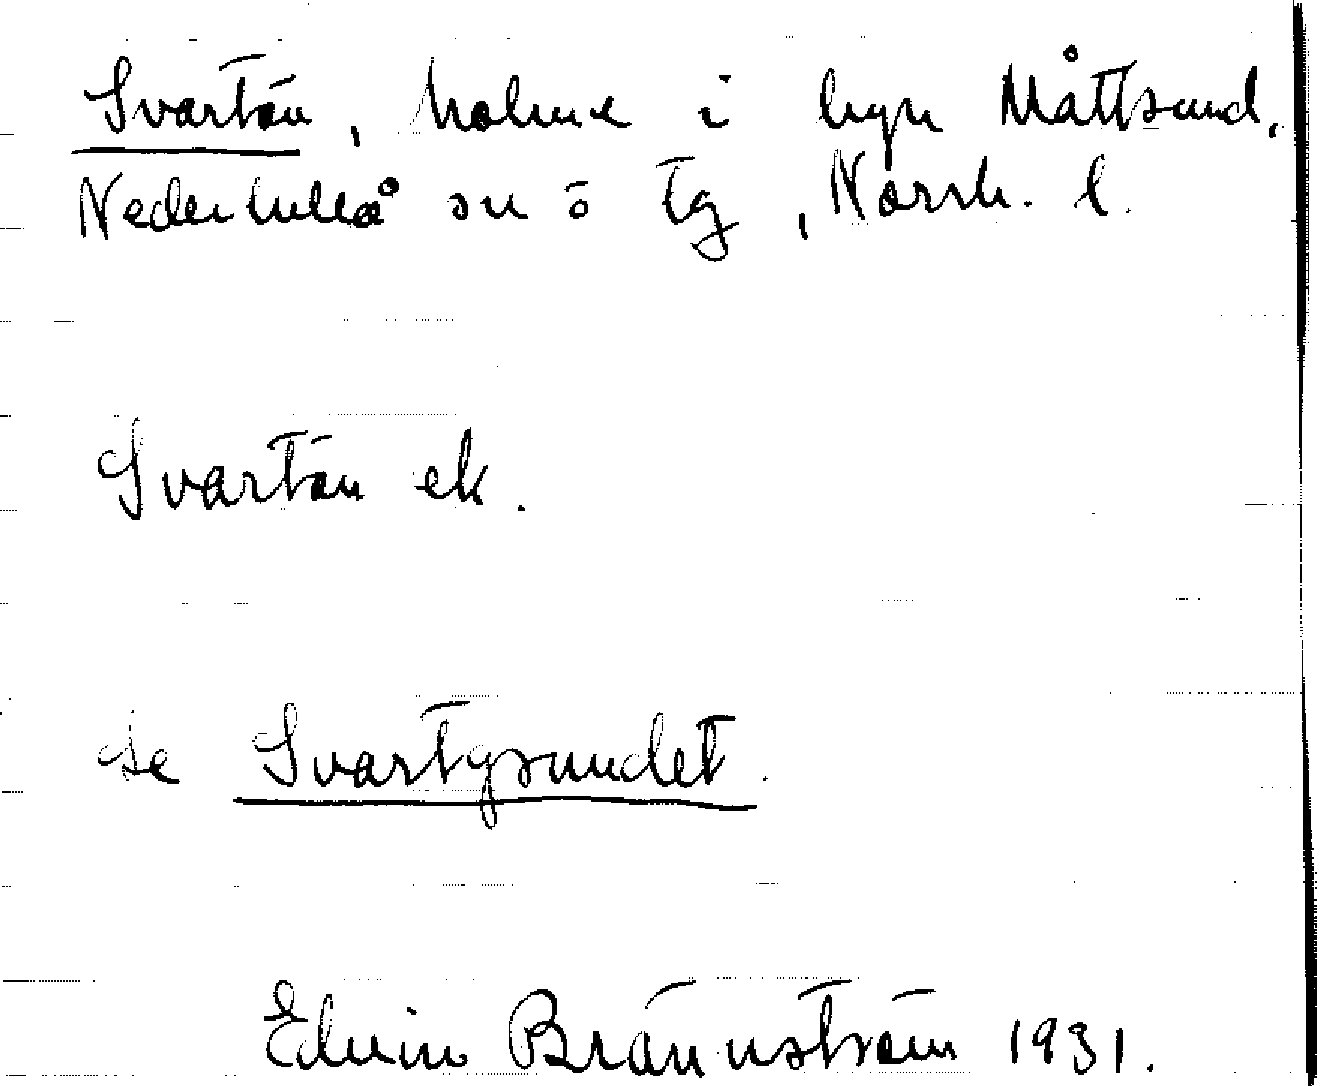 Svartön, holme i byn Måttsund,
Nederluleå sn ö tg, Norrb. l.
Svartön ek.
se Svartgrundet.
Edvin Brännström 1931.